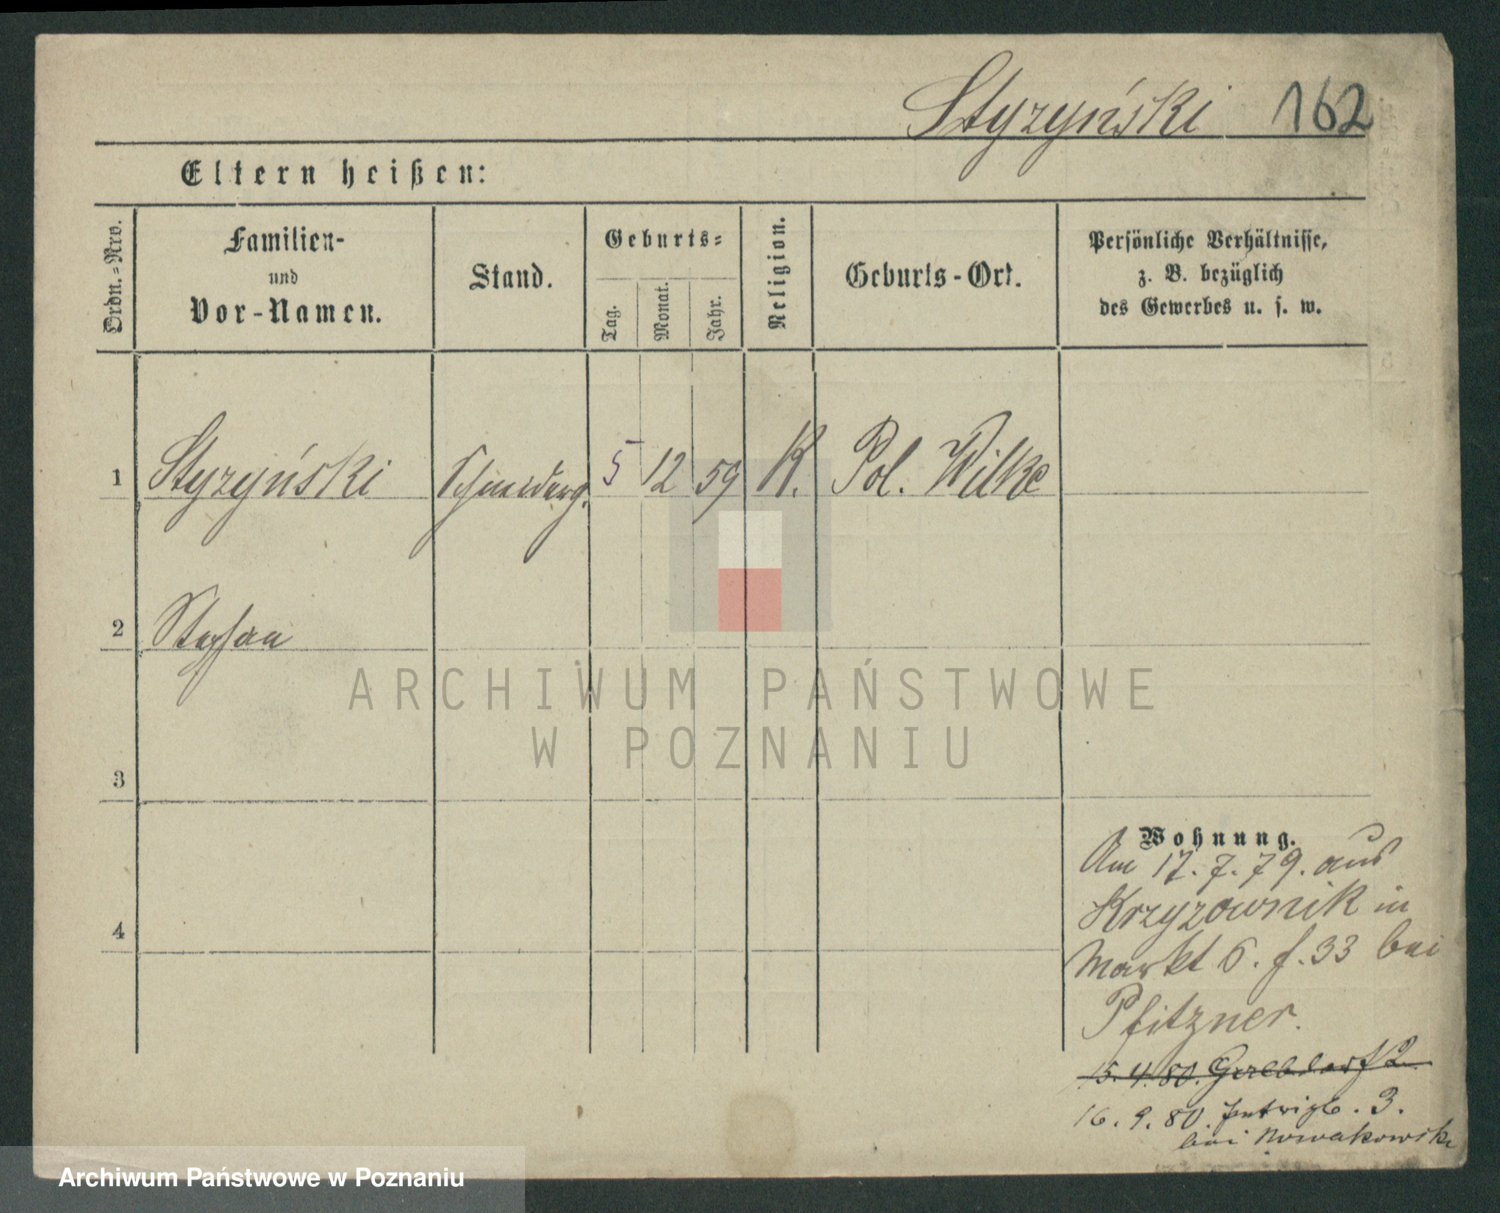 Styzyński 162
Eltern heißen:
Ordn.-Nro.
Familien-
und
Vor-Namen.
Stand.
Geburts-
Tag.
Monat.
Jahr.
Religion.
Geburts-Ort.
Persönliche Verhältnisse,
z. B. bezüglich
des Gewerbes u. s. w.
1 Styzyński 5 12 59 K. Pol. Wilke
2 Stephan
3
4
Wohnung.
Am 17. 7. 79. aus
Krzyzownik in
Markt 6. f. 33 bei
Pfitzner.
15. 4. 80.
16. 9. 80. 3.
bei Nowakowski
ARCHIWUM PAŃSTWOWE
W POZNANIU
Archiwum Państwowe w Poznaniu